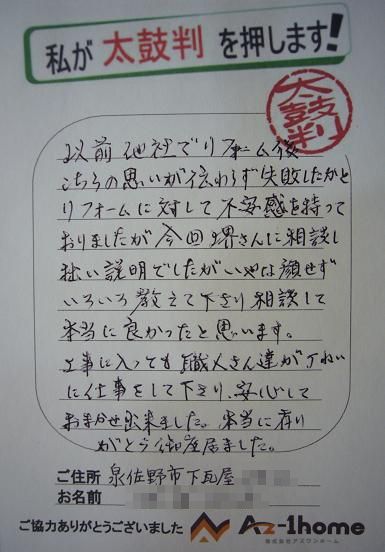 私が 太鼓判 を押します!
太鼓判
以前他社でリフォーム後
こちらの思いが伝わらず失敗したかと
リフォームに対して不安感を持って
おりましたが今回堺さんに相談し
拙い説明でしたがいやな顔せず
いろいろ教えて下さり相談して
本当に良かったと思います。
工事に入っても職人さん達が丁ねい
に仕事をして下さり、安心して
おまかせ出来ました。本当に有り
がとう御座居ました。
ご住所 泉佐野市下瓦屋
お名前
ご協力ありがとうございました Az-1home
株式会社アズワンホーム